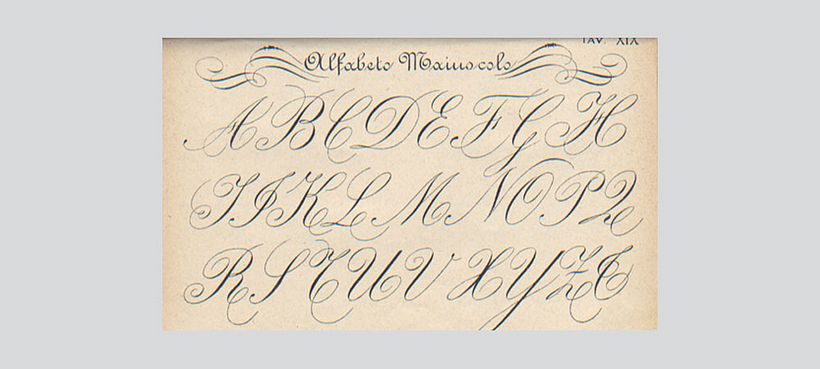 TAV. XIX
Alfabeto Maiuscolo
A B C D E F G H
I J K L M N O P Q
R S T U V X Y Z &